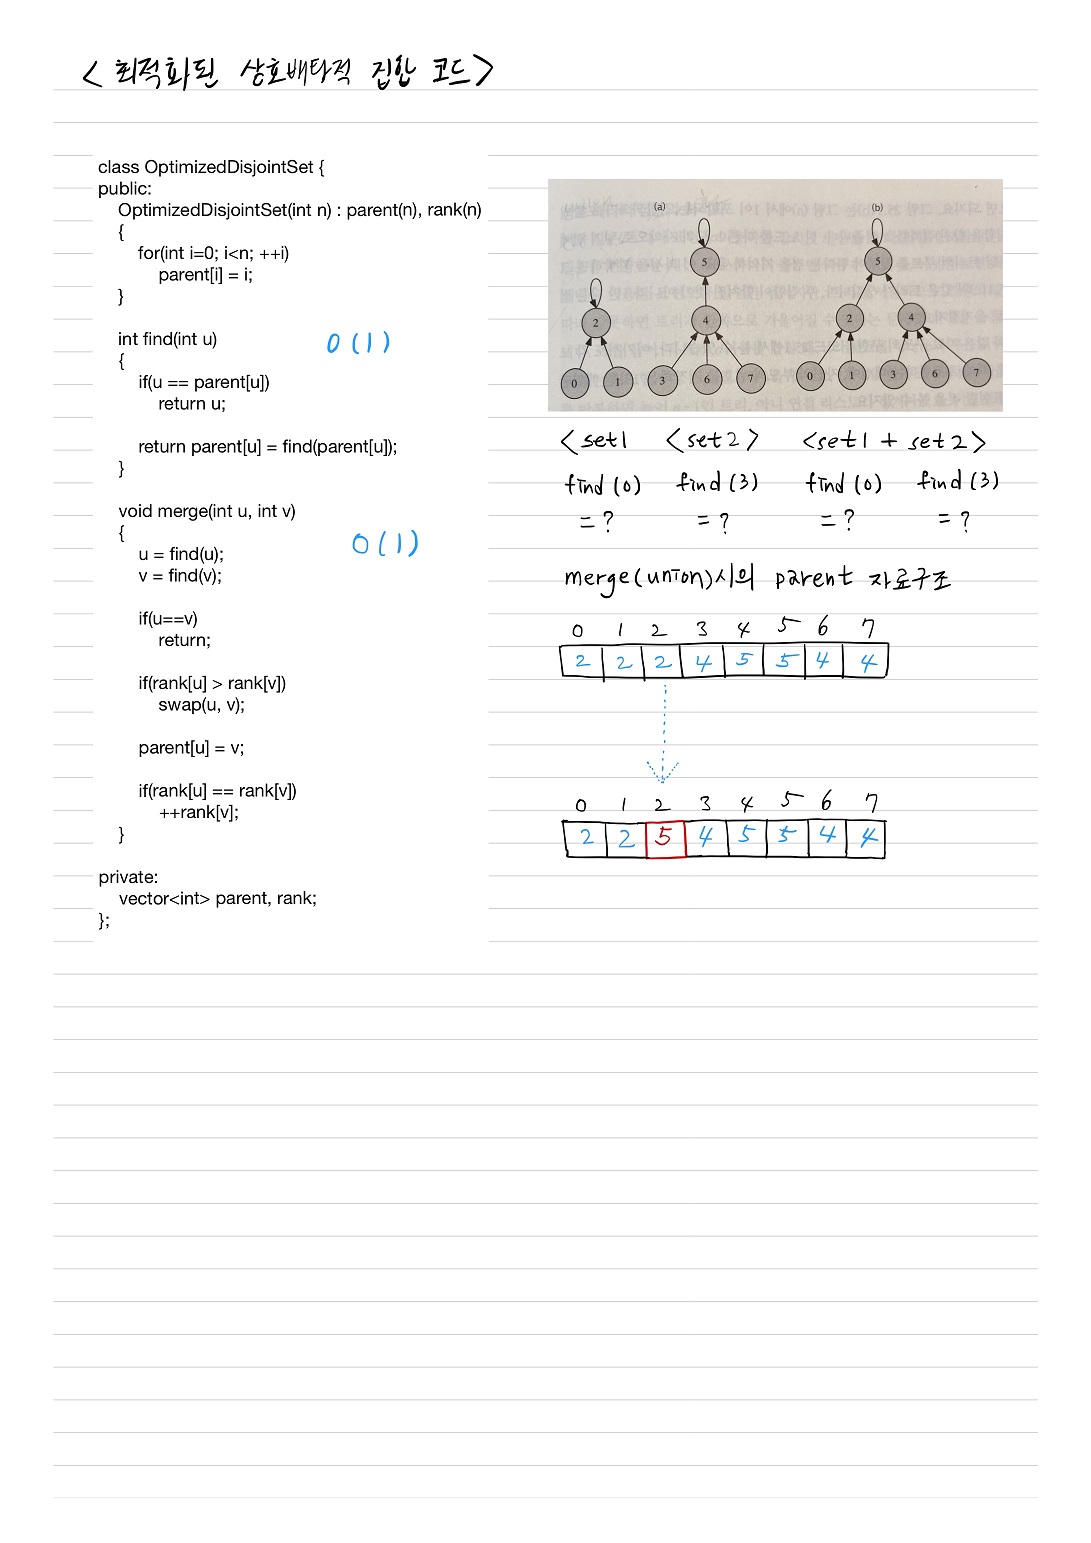 <최적화된 상호배타적 집합 코드>
class OptimizedDisjointSet {
public:
OptimizedDisjointSet(int n) : parent(n), rank(n)
{
for(int i=0; i<n; ++i)
parent[i] = i;
}
int find(int u) O(1)
{
if(u == parent[u])
return u;
return parent[u] = find(parent[u]);
}
void merge(int u, int v)
{ O(1)
u = find(u);
v = find(v);
if(u==v)
return;
if(rank[u] > rank[v])
swap(u, v);
parent[u] = v;
if(rank[u] == rank[v])
++rank[v];
}
private:
vector<int> parent, rank;
};
(a) (b)
5 5
2 4 2 4
0 1 3 6 7 0 1 3 6 7
<set1 <set2> <set1 + set2>
find(0) find(3) find(0) find(3)
=? =? =? =?
merge(union)시의 parent 자료구조
0 1 2 3 4 5 6 7
2 2 2 4 5 5 4 4
0 1 2 3 4 5 6 7
2 2 5 4 5 5 4 4